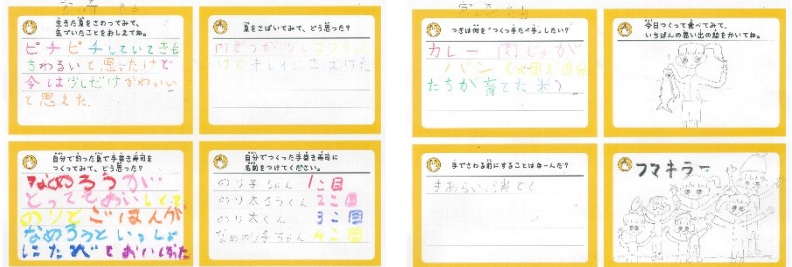 生きた魚をさわってみて、
気づいたことをおしえてね。
ピチピチしていてきも
ちわるいと思ったけど
今は少しだけかわいい
と思えた
魚をさばいてみて、どう思った?
けどキレイにさばけた
自分で釣った魚で手巻き寿司を
つくってみて、どう思った?
なめろうが…
とってもおいしくて
のりとごはんが
なめろうといっしょ
にたべるとおいしかった
自分でつくった手巻き寿司に
名前をつけてください。
のり子ちゃん 1こ目
のり太ろうくん 2こ目
のり太くん 3こ目
なめのり子ちゃん 4こ目
つぎは何を“つくっ手たべ手”したい?
カレー 肉じゃが
パン
たちが育てた米)
今日つくって食べてみて、
いちばんの思い出の絵をかいてね。
手でさわる前にすることはなーんだ?
手あらい、消どく
フマキラー